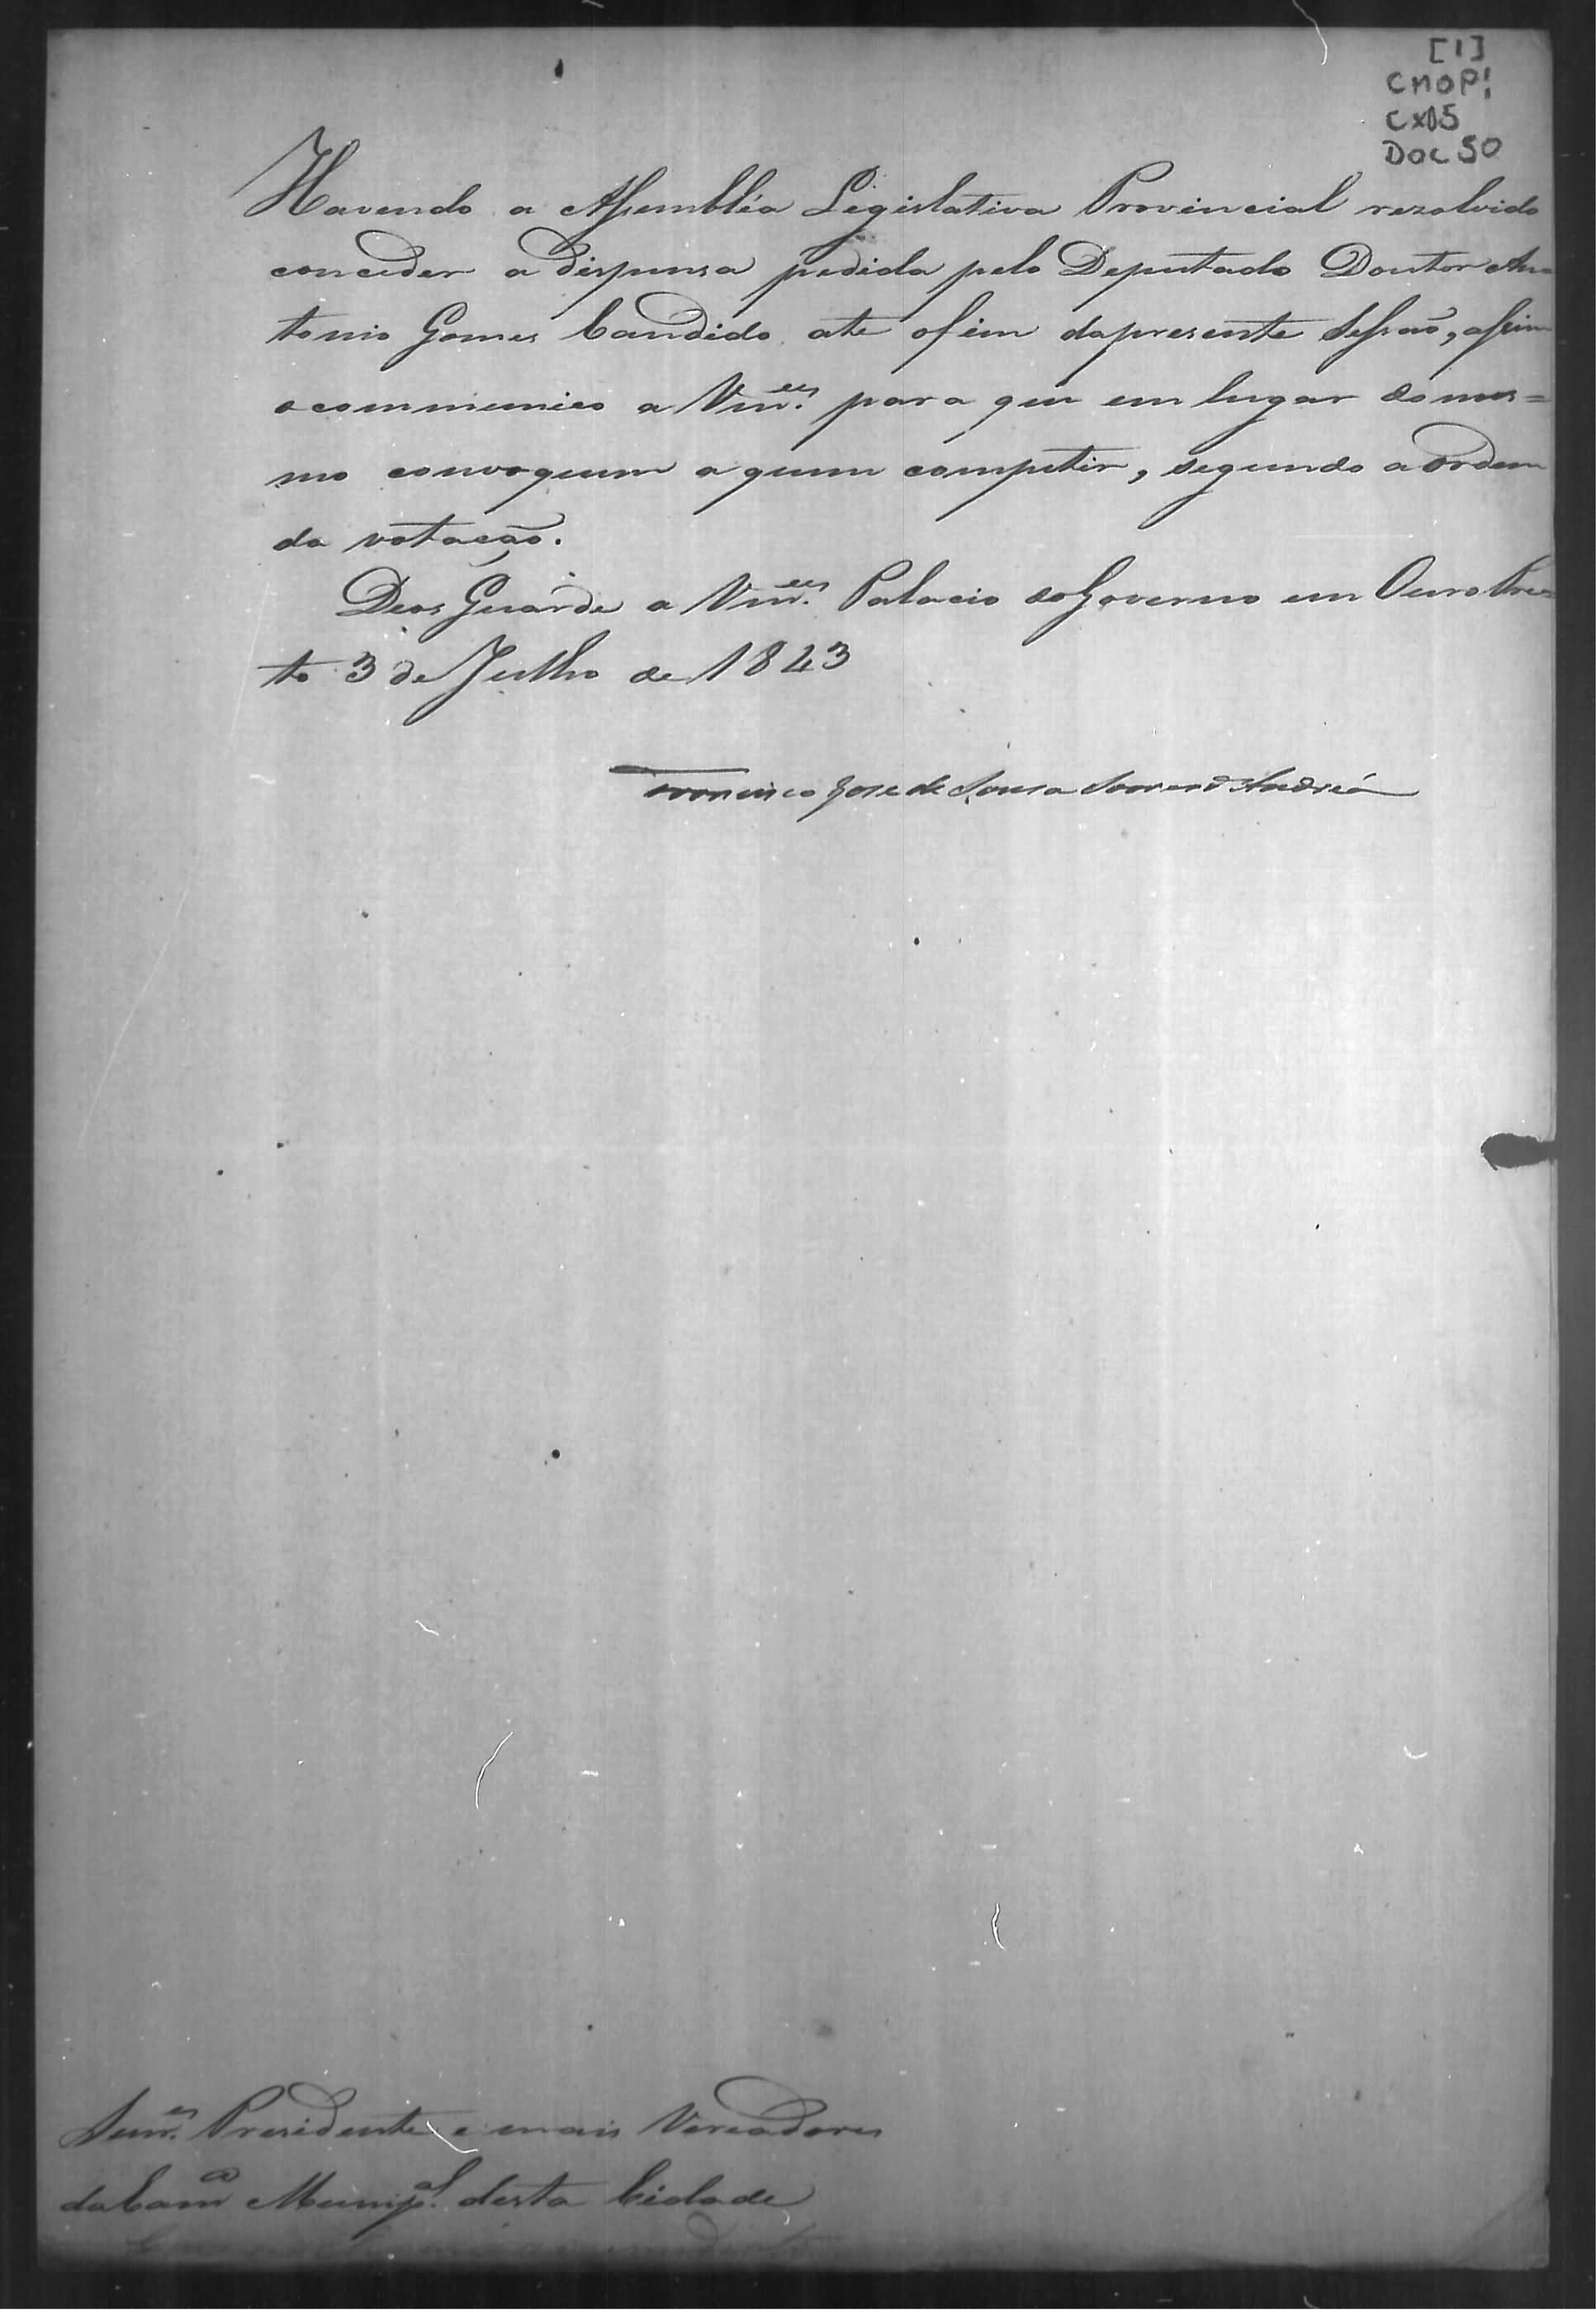 [1]
CMOP!
CX05
DOC 50
Havendo a Assembléa Legislativa Provincial rezolvido
conceder a dispensa pedida pelo Deputado Doutor An=
tonio Gomes Candido ate o fim da presente Sessaõ, assim
o communico a Vm.ces para que em lugar do mes=
mo convoquem a quem competir, segundo a ordem
da votação.
Deos Guarde a Vm.ces Palacio do Governo em Ouro Pre=
to 3 de Julho de 1843
Francisco José de Sousa Soares d'Andréa
Senr.es Presidente e mais Vereadores
da Cam.a Municp.al desta Cidade